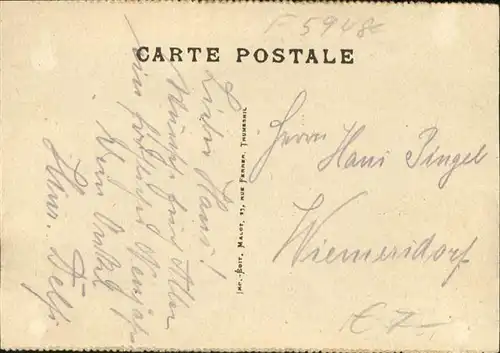 F 5948
CARTE POSTALE
Lieber Hans!
Wünsche für Alle
ein fröhliches Neujahr
Dein Onkel
Hinr.
IMP.-EDIT. MALOT, 27, RUE FERRER, THUMERNIL
Herrn Hans Pingel
Wiemersdorf
€ 7.—